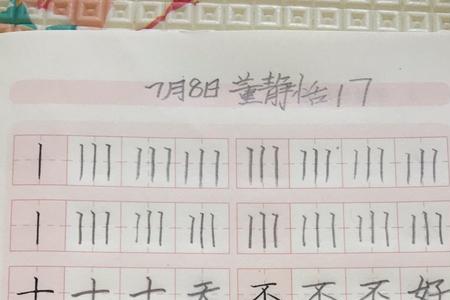 7月8日 董静怡 17
丨 丨丨丨 丨丨丨 丨丨丨 丨丨丨 丨丨丨 丨丨丨 丨丨丨
丨 丨丨丨 丨丨丨 丨丨丨 丨丨丨 丨丨丨 丨丨丨 丨丨丨
十 十 十 不 不 不 好